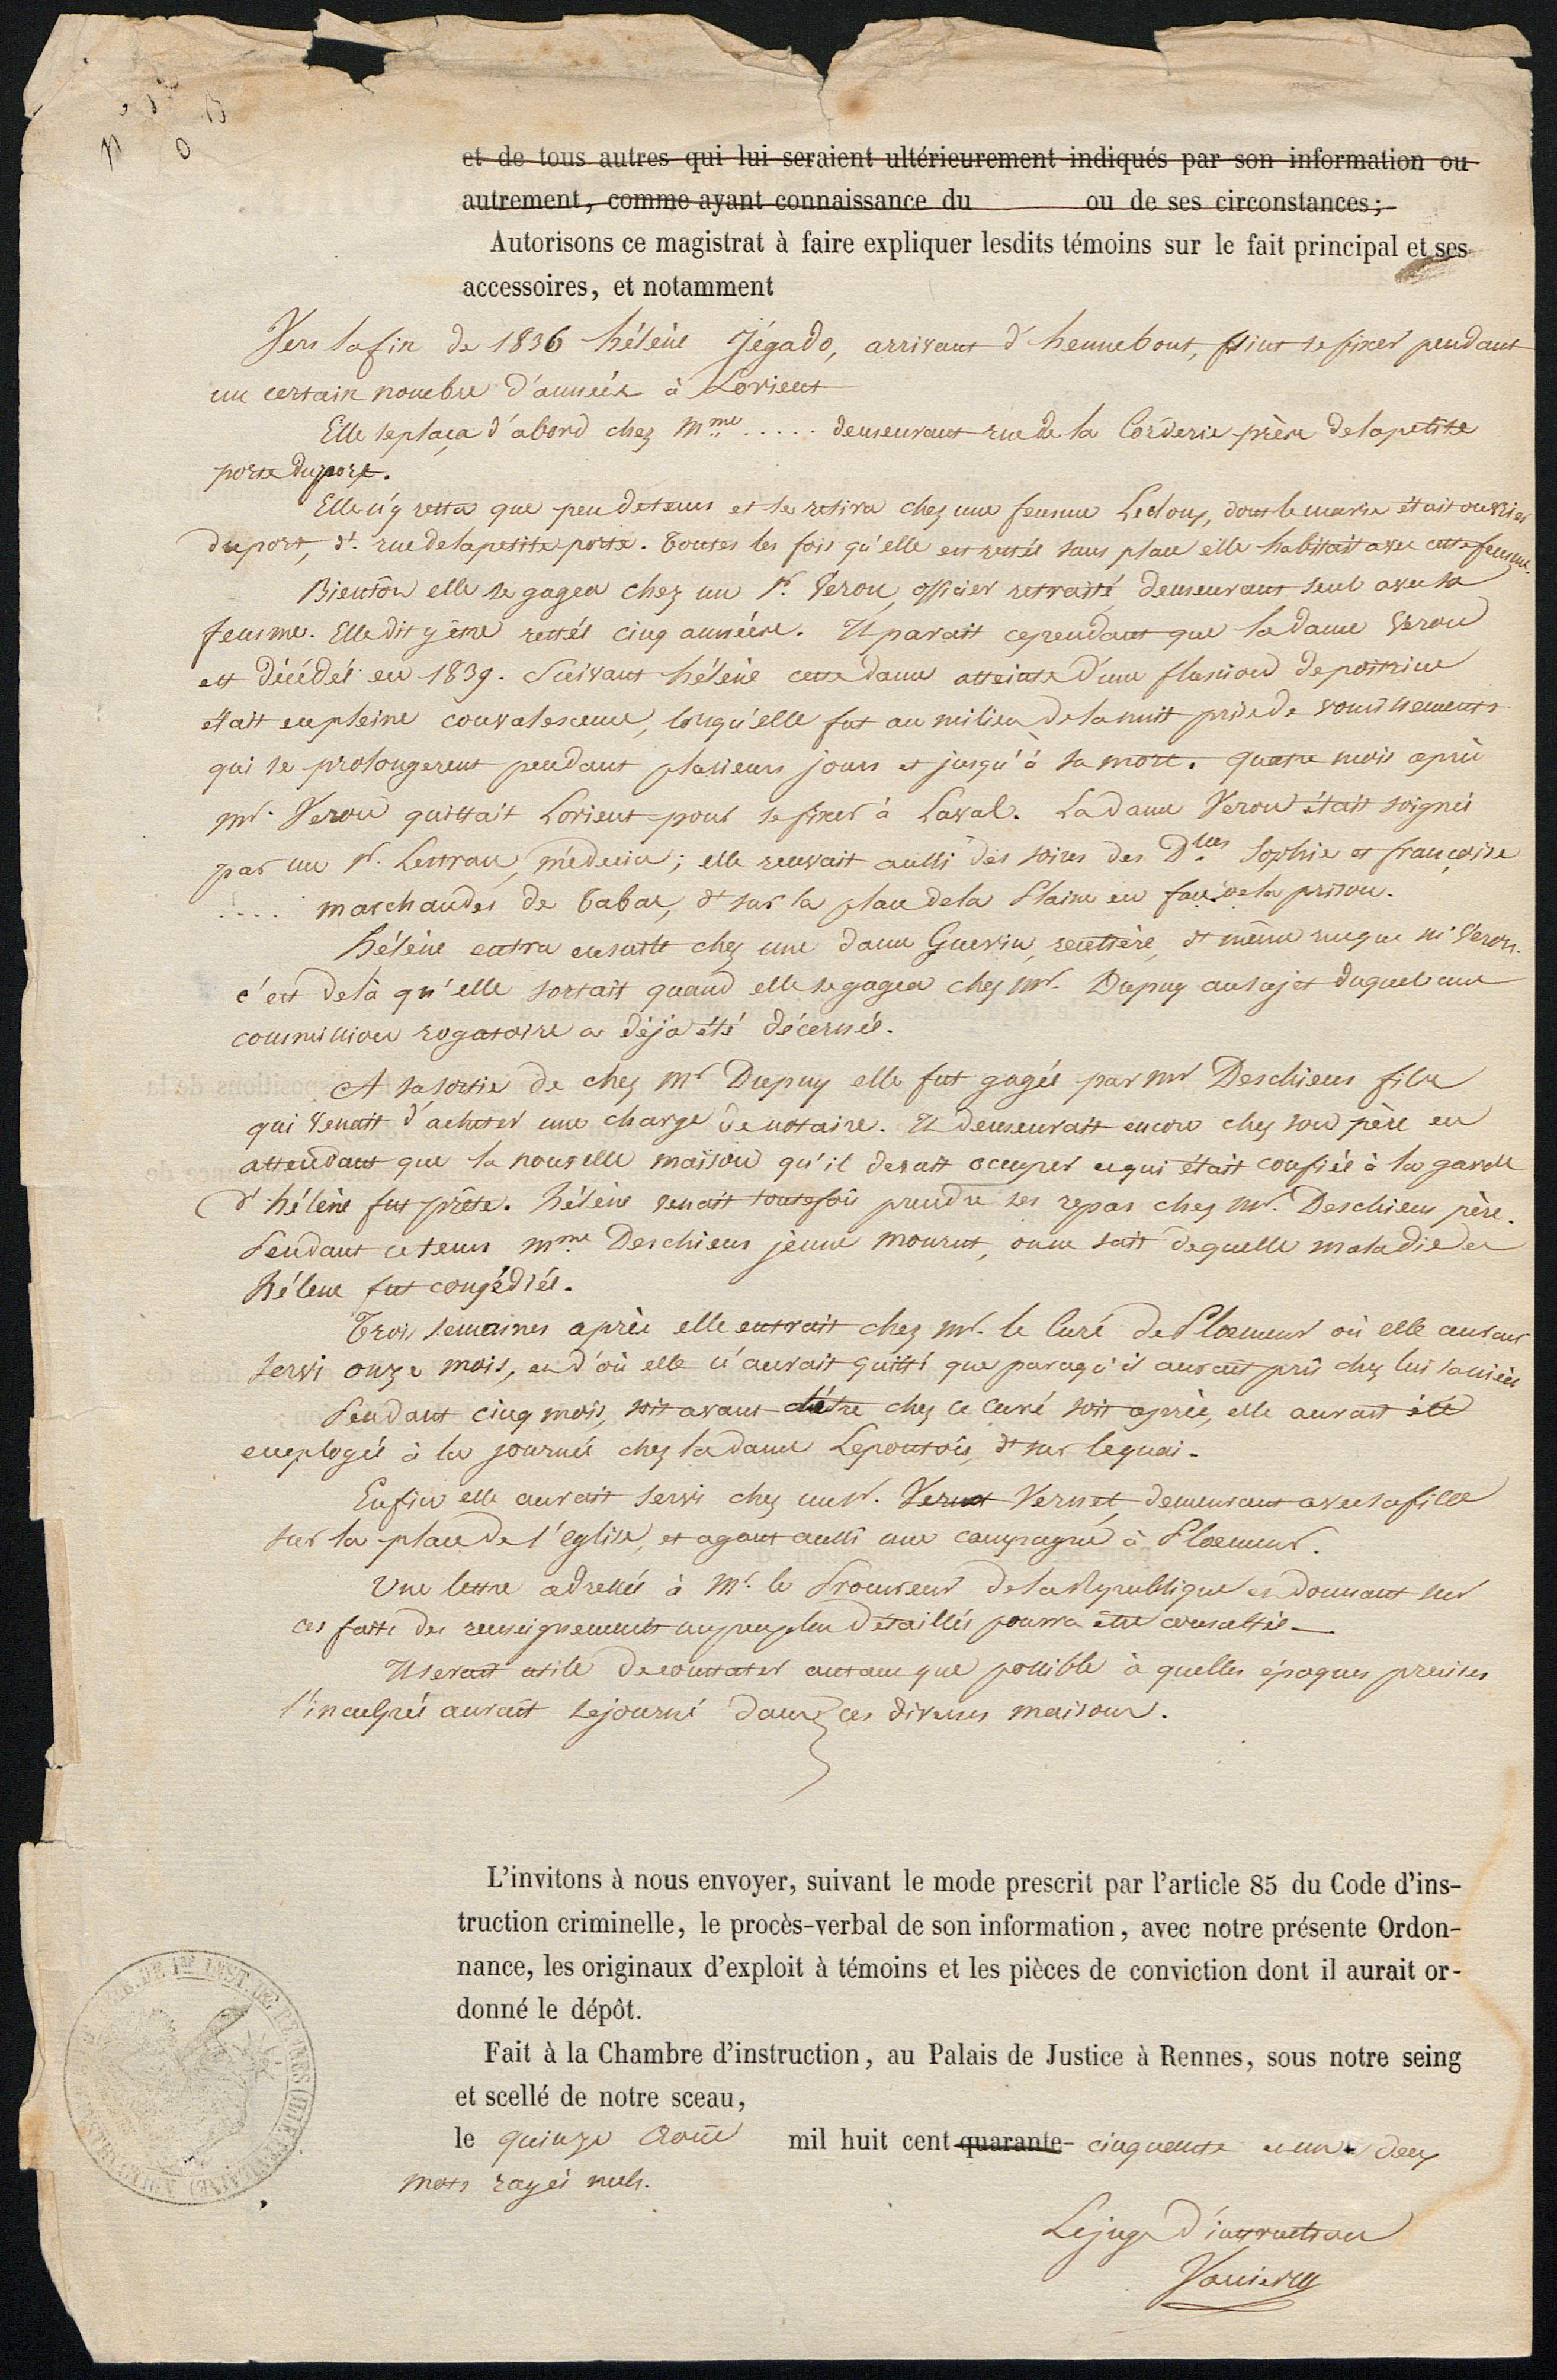 et de tous autres qui lui seraient ultérieurement indiqués par son information ou
autrement, comme ayant connaissance du ou de ses circonstances;
Autorisons ce magistrat à faire expliquer lesdits témoins sur le fait principal et ses
accessoires, et notamment
Vers la fin de 1836 hélène Jégado, arrivant d'hennebont, vint se fixer pendant
un certain nombre d'années à Lorient
Elle se plaça d'abord chez Mme ..... demeurant rue de la Corderie près de la petite
porte du port.
Elle n'y resta que peu de tems et se retira chez une femme Ledoux, dont le mari était ouvrier
du port, dt. rue de la petite porte. Toutes les fois qu'elle est restée sans place elle habitait avec cette femme.
Bientôt elle se gagea chez un Sr. Veron, officier retraité, demeurant seul avec sa
femme. Elle dit y être restée cinq années. Il parait cependant que la dame Veron
est décédée en 1839. Suivant hélène cette dame atteinte d'une fluxion de poitrine
était en pleine convalescence, lorsqu'elle fut au milieu de la nuit prise de vomissements
qui se prolongerent pendant plusieurs jours et jusqu'à sa mort. quatre mois après
Mr. Veron quittait Lorient pour se fixer à Laval. La dame Veron était soignée
par un Sr. Lestrau, médecin; elle recevait aussi des soins des Dlles Sophie et françoise
.... marchandes de tabac, dt sur la place de la Plaine en face de la prison.
Hélène entra ensuite chez une dame Guerin, rentière, dt même rue que Mr Veron.
c'est de là qu'elle sortait quand elle se gagea chez Mr. Dupuy au sujet duquel une
commission rogatoire a déjà été décernée.
A sa sortie de chez Mr Dupuy elle fut gagée par Mr Deschiens fils
qui venait d'acheter une charge de notaire. Il demeurait encore chez son père en
attendant que la nouvelle maison qu'il devait occuper et qui était confiée à la garde
d'hélène fut prête. hélène venait toutefois prendre ses repas chez Mr. Deschiens père.
Pendant ce tems Mme Deschiens jeune mourut, on ne sait de quelle maladie et
hélène fut congédiée.
Trois semaines après elle entrait chez Mr. le Curé de Ploemeur où elle aurait
servi onze mois, et d'où elle n'aurait quitté que parcequ'il aurait pris chez lui sa nièce
Pendant cinq mois, soit avant d'être chez ce curé soit après, elle aurait été
employée à la journée chez la dame Lepontois, dt sur le quai.
Enfin elle aurait servi chez un Sr. Vernet demeurant avec sa fille
sur la place de l'église, et ayant aussi une campagne à Ploemeur.
Une lettre adressée à Mr. le Procureur de la République et donnant sur
ces faits des renseignements un peu plus détaillés pourra être consultée
Il serait utile de constater autant que possible à quelles époques précises
l'inculpée aurait séjourné dans ces diverses maisons.
L'invitons à nous envoyer, suivant le mode prescrit par l'article 85 du Code d'ins-
truction criminelle, le procès-verbal de son information, avec notre présente Ordon-
nance, les originaux d'exploit à témoins et les pièces de conviction dont il aurait or-
donné le dépôt.
Fait à la Chambre d'instruction, au Palais de Justice à Rennes, sous notre seing
et scellé de notre sceau,
le quinze Août mil huit cent quarante- cinquante et un. deux
mots rayés nuls.
Le juge d'instruction